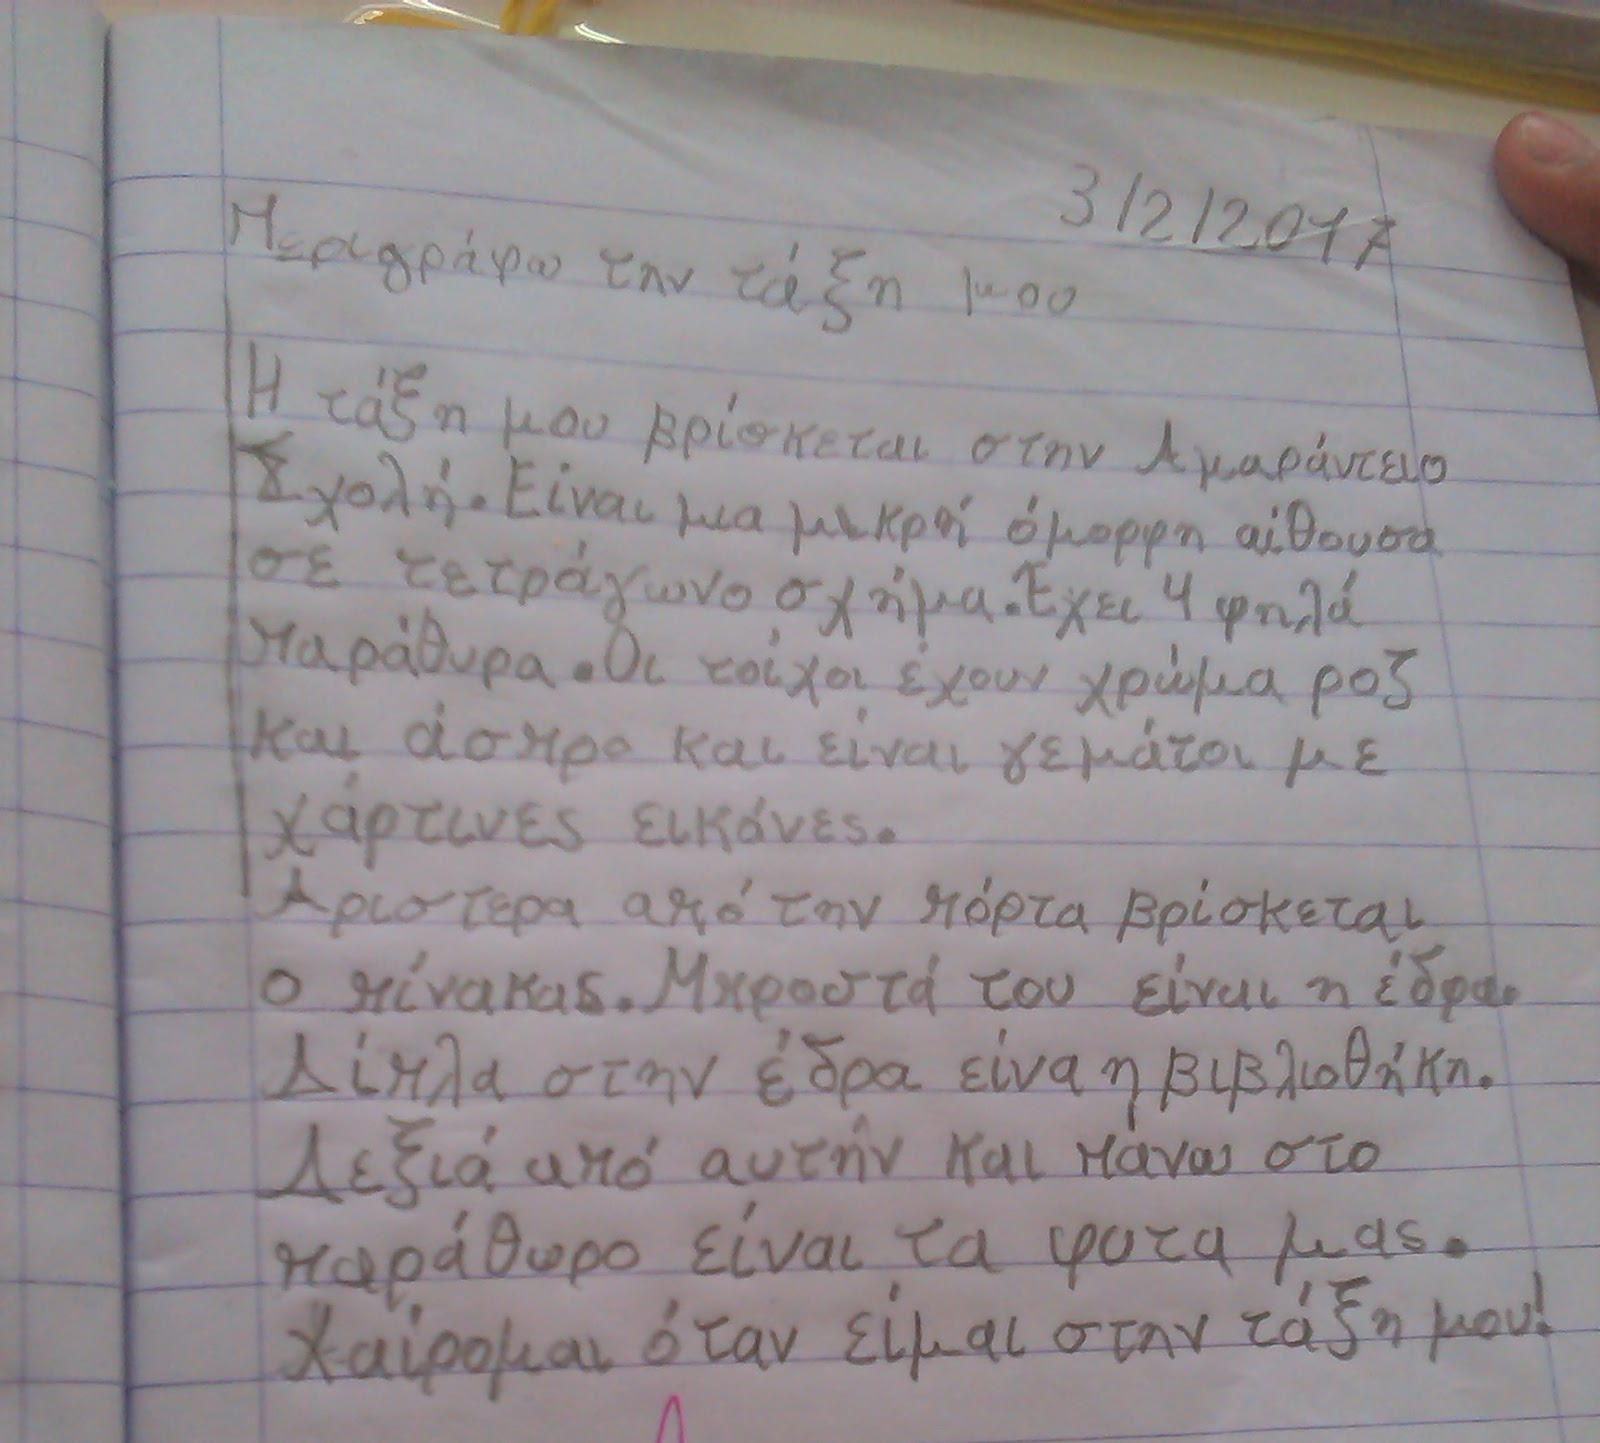 3/2/2017
Περιγράφω την τάξη μου
Η τάξη μου βρίσκεται στην Αμαράντειο
Σχολή. Είναι μια μικρή όμορφη αίθουσα
σε τετράγωνο σχήμα. Έχει 4 ψηλά
παράθυρα. Οι τοίχοι έχουν χρώμα ροζ
και άσπρο και είναι γεμάτοι με
χάρτινες εικόνες.
Αριστερα από την πόρτα βρίσκεται
ο πίνακας. Μπροστά του είναι η έδρα.
Δίπλα στην έδρα είνα η βιβλιοθήκη.
Δεξιά από αυτήν και πάνω στο
παράθωρο είναι τα φυτα μας.
Χαίρομαι όταν είμαι στην τάξη μου!